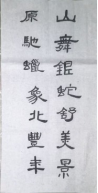 山舞銀蛇舒美景
原馳蠟象兆豐年